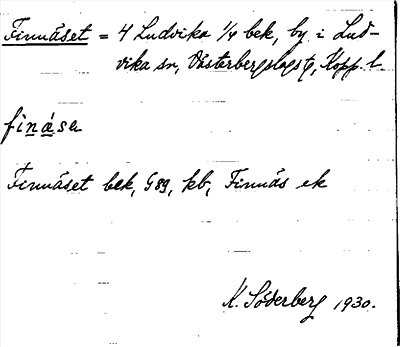 Finnäset = 4 Ludvika 1/4 bek, by i Lud-
vika sn, Västerbergslags , Kopp. l.
finása
Finnäset bek, G89, kb, Finnäs ek
K. Söderberg 1930.